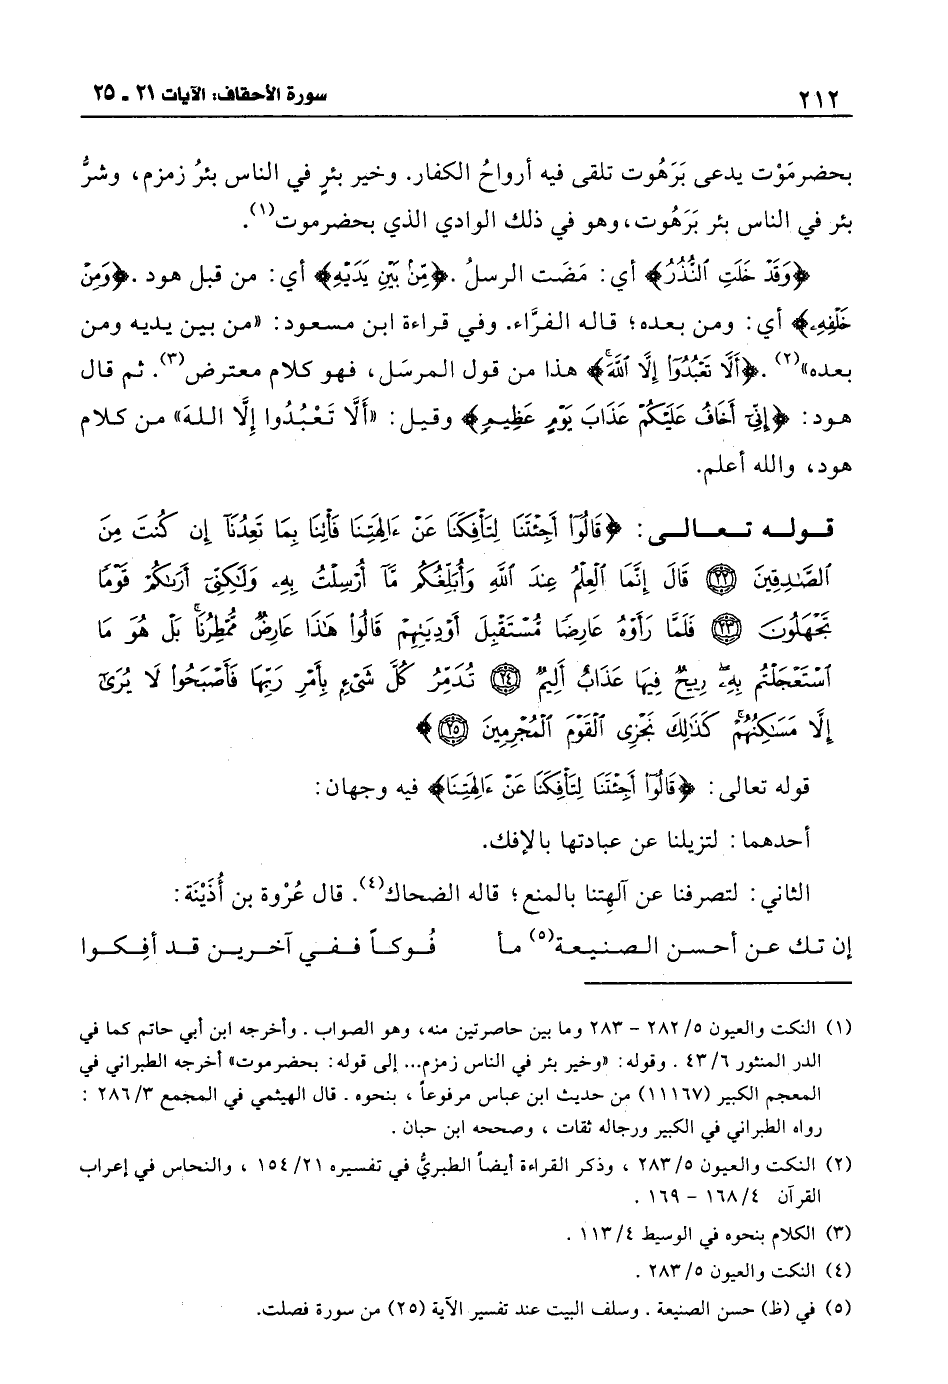 ٢١٢ سورة الأحقاف: الآيات ٢١ ـ ٢٥
بحضرمَوْت يدعى بَرَهُوت تلقى فيه أرواحُ الكفار. وخير بئرٍ في الناس بئرُ زمزم، وشرُّ
بئر في الناس بئر بَرَهُوت، وهو في ذلك الوادي الذي بحضرموت(١).
﴿وَقَدْ خَلَتِ ٱلنُّذُرُ﴾ أي: مَضَت الرسلُ. ﴿مِنْ بَيْنِ يَدَيْهِ﴾ أي: من قبل هود. ﴿وَمِنْ
خَلْفِهِۦ﴾ أي: ومن بعده؛ قاله الفرَّاء. وفي قراءة ابن مسعود: «من بين يديه ومن
بعده»(٢). ﴿أَلَّا تَعْبُدُوٓا إِلَّا ٱللَّهَ﴾ هذا من قول المرسَل، فهو كلام معترض(٣). ثم قال
هود: ﴿إِنِّىٓ أَخَافُ عَلَيْكُمْ عَذَابَ يَوْمٍ عَظِيمٍ﴾ وقيل: «أَلَّا تَعْبُدُوا إِلَّا اللهَ» من كلام
هود، والله أعلم.
قوله تعالى: ﴿قَالُوٓا۟ أَجِئْتَنَا لِتَأْفِكَنَا عَنْ ءَالِهَتِنَا فَأْتِنَا بِمَا تَعِدُنَآ إِن كُنتَ مِنَ
ٱلصَّـٰدِقِينَ ﴿٢٢﴾ قَالَ إِنَّمَا ٱلْعِلْمُ عِندَ ٱللَّهِ وَأُبَلِّغُكُم مَّآ أُرْسِلْتُ بِهِۦ وَلَـٰكِنِّىٓ أَرَىٰكُمْ قَوْمًا
تَجْهَلُونَ ﴿٢٣﴾ فَلَمَّا رَأَوْهُ عَارِضًا مُّسْتَقْبِلَ أَوْدِيَتِهِمْ قَالُوا۟ هَـٰذَا عَارِضٌ مُّمْطِرُنَا ۚ بَلْ هُوَ مَا
ٱسْتَعْجَلْتُم بِهِۦ ۖ رِيحٌ فِيهَا عَذَابٌ أَلِيمٌ ﴿٢٤﴾ تُدَمِّرُ كُلَّ شَىْءٍ بِأَمْرِ رَبِّهَا فَأَصْبَحُوا۟ لَا يُرَىٰٓ
إِلَّا مَسَـٰكِنُهُمْ ۚ كَذَٰلِكَ نَجْزِى ٱلْقَوْمَ ٱلْمُجْرِمِينَ ﴿٢٥﴾﴾
قوله تعالى: ﴿قَالُوٓا۟ أَجِئْتَنَا لِتَأْفِكَنَا عَنْ ءَالِهَتِنَا﴾ فيه وجهان:
أحدهما: لتزيلنا عن عبادتها بالإفك.
الثاني: لتصرفنا عن آلهتنا بالمنع؛ قاله الضحاك(٤). قال عُرْوة بن أُذَيْنَة:
إن تك عن أحسن الصنيعة(٥) مأ فُوكاً ففي آخرين قد أفِكوا
(١) النكت والعيون ٢٨٢/٥ - ٢٨٣ وما بين حاصرتين منه، وهو الصواب. وأخرجه ابن أبي حاتم كما في
الدر المنثور ٤٣/٦. وقوله: «وخير بئر في الناس زمزم... إلى قوله: بحضرموت» أخرجه الطبراني في
المعجم الكبير (١١١٦٧) من حديث ابن عباس مرفوعاً، بنحوه. قال الهيثمي في المجمع ٢٨٦/٣:
رواه الطبراني في الكبير ورجاله ثقات، وصححه ابن حبان.
(٢) النكت والعيون ٢٨٣/٥، وذكر القراءة أيضاً الطبريُّ في تفسيره ١٥٤/٢١، والنحاس في إعراب
القرآن ١٦٨/٤ - ١٦٩.
(٣) الكلام بنحوه في الوسيط ١١٣/٤.
(٤) النكت والعيون ٢٨٣/٥.
(٥) في (ظ) حسن الصنيعة. وسلف البيت عند تفسير الآية (٢٥) من سورة فصلت.